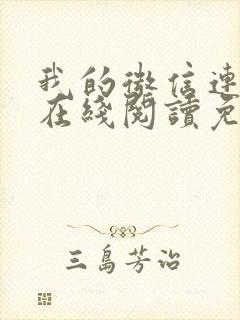 我的微信連
在綫閱讀免
三島芳治